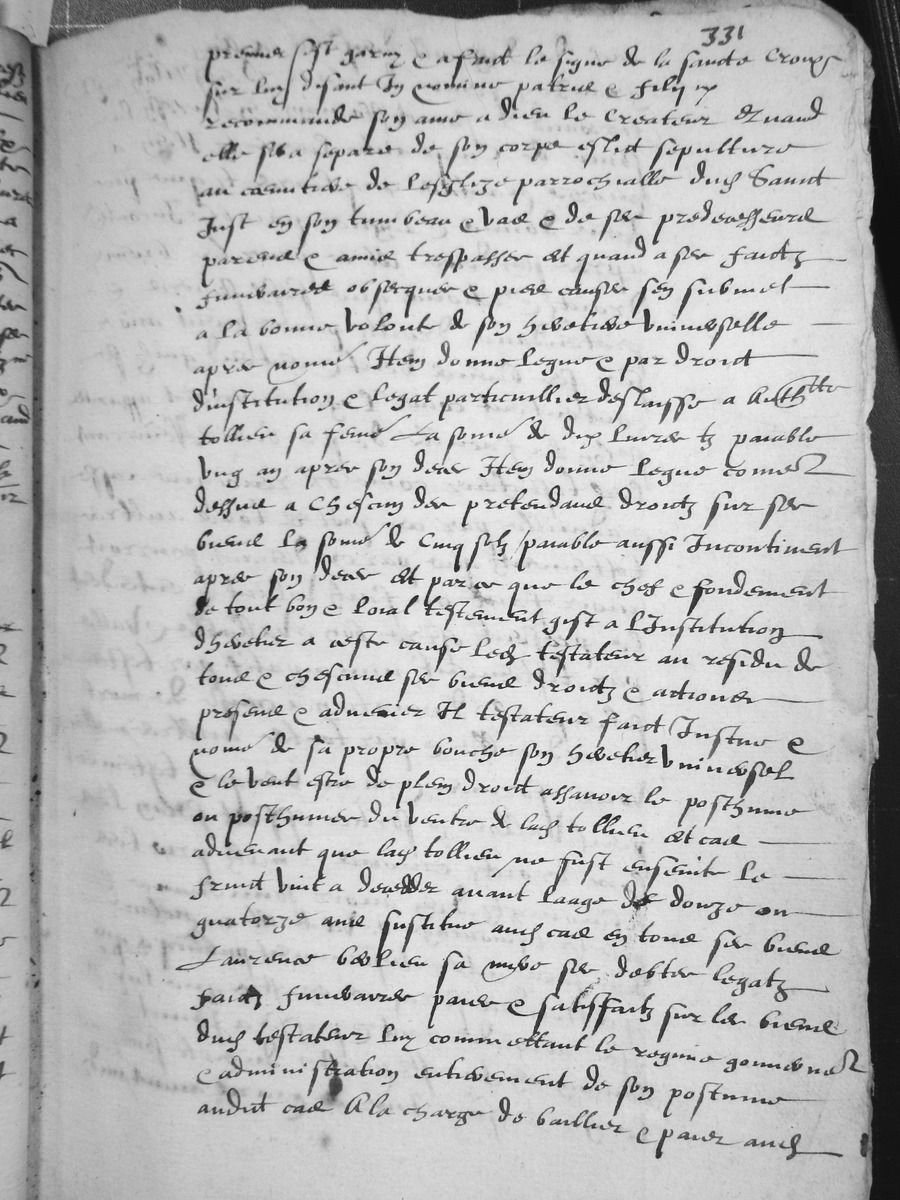 331
premier sest garny & a faict le signe de la saincte Croix
sur luy disant In nomine patris & filij
recommande son ame a dieu le Createur & quand
elle sera separe de son corps eslict sepulture
au cemitiere de lesglize parrochialle dud Sainct
Just en son tumbeau & vas & de ses predecesseurs
parens & amis trespasses et quand a ses faictz
funeraires obseques & pies causes sen submet
a la bonne volonte de son heretiere universelle
apres nome Item donne legue & par droict
dinstitution & legat particullier deslaisse a
tollieu sa feme La some de dix livres tz paiable
ung an apres son deces Item donne legue come
dessus a Chescun des pretendans droictz sur ses
biens La some de Cinq solz paiable aussi Incontinent
apres son deces et parce que le chef & fondement
de tout bon & loial testement gist a lInstitution
dheretier a ceste cause led testateur au residu de
tous & chescuns ses biens droictz & actiones
presens & advenier Il testateur faict Instue &
nome de sa propre bouche son heretier universel
& le veut estre de plein droict assavoir le posthume
ou posthumes du ventre de lad tollieu et cas
advenant que lad tollieu ne fust enseinte le
fruict vint a deceder avant laage de douze ou
quatorze ans sustitue aud cas en tous ses biens
Laurence sa mere ses debtes legatz
faictz funeraires paies & satisfaictz sur les biens
dud testateur luy commettant le regime gouverne
& administration entierement de son postume
audit cas A la charge de baillier & paier aud